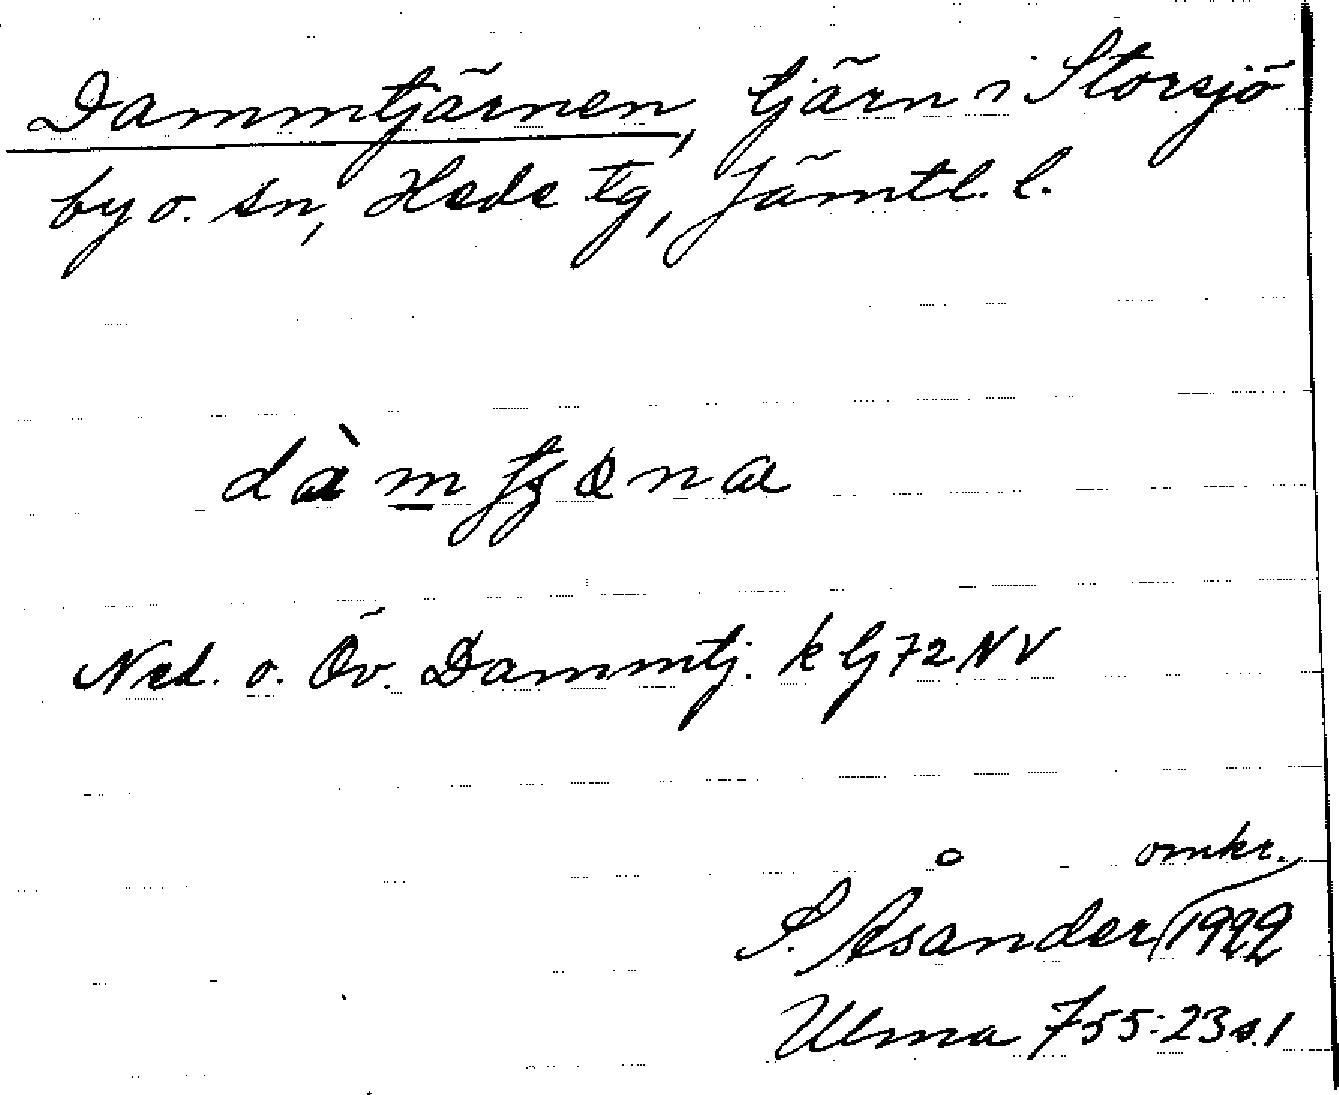 Dammtjärnen, tjärn i Storsjö
by o. sn, Hede tg, Jämtl. l.
Ned. o. Öv. Dammtj. k bj 72 NV
omkr.
S. Åsander 1922
Ulma 755:23 s. 1